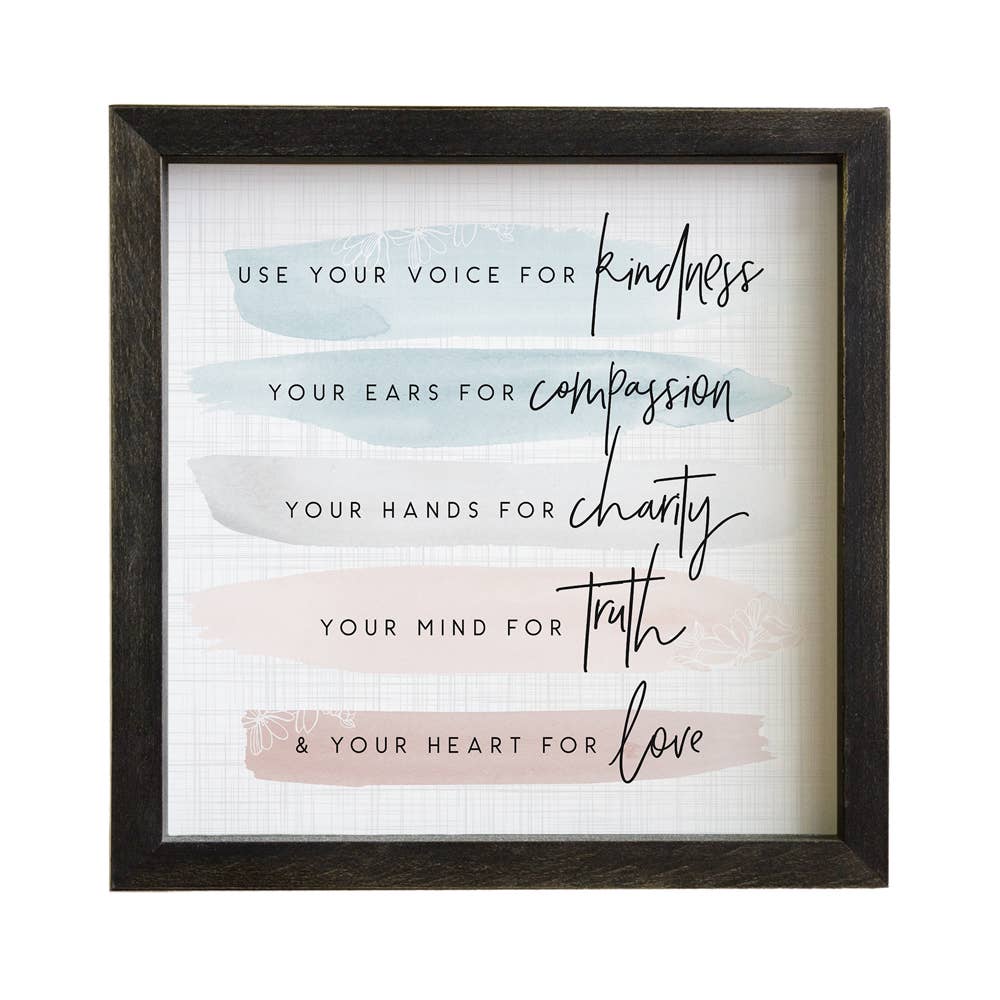 USE YOUR VOICE FOR kindness
YOUR EARS FOR compassion
YOUR HANDS FOR charity
YOUR MIND FOR truth
& YOUR HEART FOR love